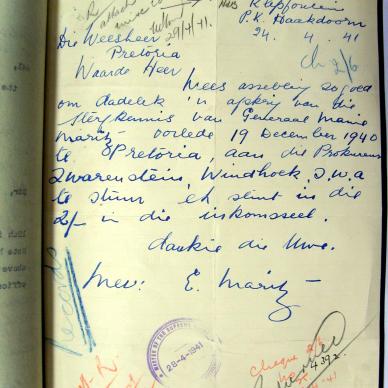 Klipfontein
P.K. Haakdoorn
24. 4. 41
29/4/41.
Die Weesheer
Pretoria
Waarde Heer,
Wees asseblief so goed
om dadelik 'n afskrif van die
sterfkennis van Generaal Manie
Maritz oorlede 19 December 1940
te Pretoria, aan die Prokureur
Zwarenstein, Windhoek S.W.A
te stuur. Ek sluit in die
2/- in die inkomseel.
dankie die Uwe.
Mev: E. Maritz
Records
MASTER OF THE SUPREME
28-4-1941
Cheque 2/6
4392